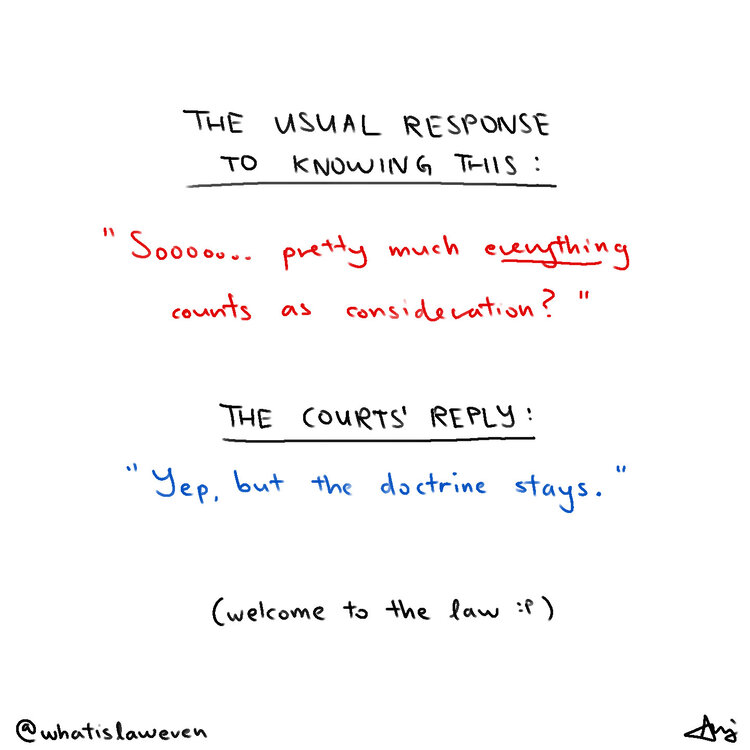 THE USUAL RESPONSE
TO KNOWING THIS:
"Sooooo... pretty much everything
counts as consideration?"
THE COURTS' REPLY:
"Yep, but the doctrine stays."
(welcome to the law :P)
@whatislaweven